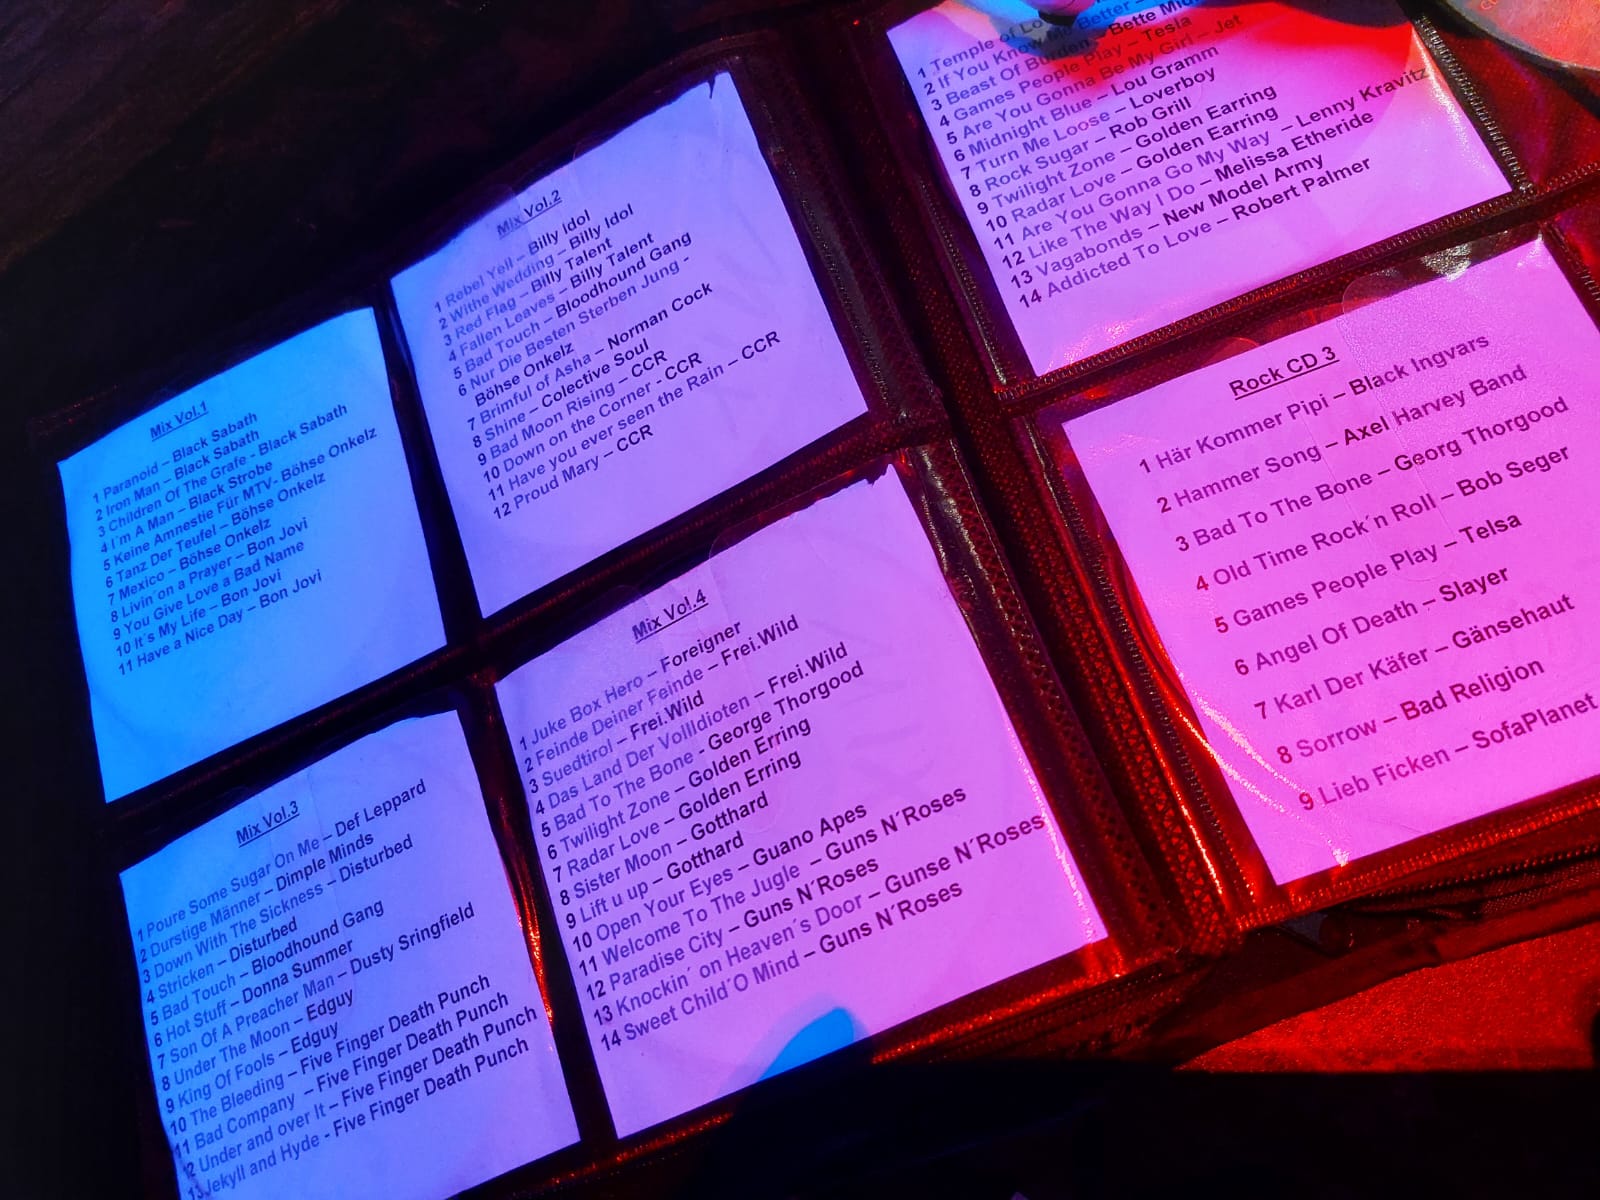 Mix Vol.1
1 Paranoid – Black Sabath
2 Iron Man – Black Sabath
3 Children Of The Grafe - Black Sabath
4 I´m A Man – Black Strobe
5 Keine Amnestie Für MTV- Böhse Onkelz
6 Tanz Der Teufel – Böhse Onkelz
7 Mexico – Böhse Onkelz
8 Livin´on a Prayer – Bon Jovi
9 You Give Love a Bad Name
10 It´s My Life – Bon Jovi
11 Have a Nice Day – Bon Jovi
Mix Vol.2
1 Rebel Yell – Billy Idol
2 Withe Wedding – Billy Idol
3 Red Flag – Billy Talent
4 Fallen Leaves – Billy Talent
5 Bad Touch – Bloodhound Gang
6 Nur Die Besten Sterben Jung -
Böhse Onkelz
7 Brimful of Asha – Norman Cock
8 Shine – Colective Soul
9 Bad Moon Rising – CCR
10 Down on the Corner - CCR
11 Have you ever seen the Rain – CCR
12 Proud Mary – CCR
Mix Vol.3
1 Poure Some Sugar On Me – Def Leppard
2 Durstige Männer – Dimple Minds
3 Down With The Sickness – Disturbed
4 Stricken – Disturbed
5 Bad Touch – Bloodhound Gang
6 Hot Stuff – Donna Summer
7 Son Of A Preacher Man – Dusty Sringfield
8 Under The Moon – Edguy
9 King Of Fools – Edguy
10 The Bleeding – Five Finger Death Punch
11 Bad Company – Five Finger Death Punch
12 Under and over It – Five Finger Death Punch
13 Jekyll and Hyde - Five Finger Death Punch
Mix Vol.4
1 Juke Box Hero – Foreigner
2 Feinde Deiner Feinde – Frei.Wild
3 Suedtirol – Frei.Wild
4 Das Land Der Vollidioten – Frei.Wild
5 Bad To The Bone - George Thorgood
6 Twilight Zone – Golden Erring
7 Radar Love – Golden Erring
8 Sister Moon – Gotthard
9 Lift u up – Gotthard
10 Open Your Eyes – Guano Apes
11 Welcome To The Jugle – Guns N´Roses
12 Paradise City – Guns N´Roses
13 Knockin´ on Heaven´s Door – Gunse N´Roses
14 Sweet Child´O Mind – Guns N´Roses
1 Temple of
2 If You Know Me Better – Bette
3 Beast Of Burden –
4 Games People Play – Tesla
5 Are You Gonna Be My Girl – Jet
6 Midnight Blue – Lou Gramm
7 Turn Me Loose – Loverboy
8 Rock Sugar – Rob Grill
9 Twilight Zone – Golden Earring
10 Radar Love – Golden Earring
11 Are You Gonna Go My Way – Lenny Kravitz
12 Like The Way I Do – Melissa Etheride
13 Vagabonds – New Model Army
14 Addicted To Love – Robert Palmer
Rock CD 3
1 Här Kommer Pipi – Black Ingvars
2 Hammer Song – Axel Harvey Band
3 Bad To The Bone – Georg Thorgood
4 Old Time Rock´n Roll – Bob Seger
5 Games People Play – Telsa
6 Angel Of Death – Slayer
7 Karl Der Käfer – Gänsehaut
8 Sorrow – Bad Religion
9 Lieb Ficken – SofaPlanet